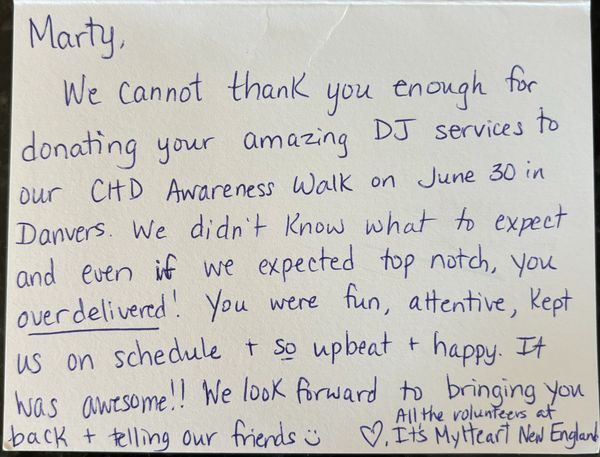 Marty,
We cannot thank you enough for
donating your amazing DJ services to
our CHD Awareness Walk on June 30 in
Danvers. We didn't know what to expect
and even if we expected top notch, you
overdelivered! You were fun, attentive, kept
us on schedule + so upbeat + happy. It
was awesome!! We look forward to bringing you
back + telling our friends ☺
All the volunteers at
♡, It's My Heart New England